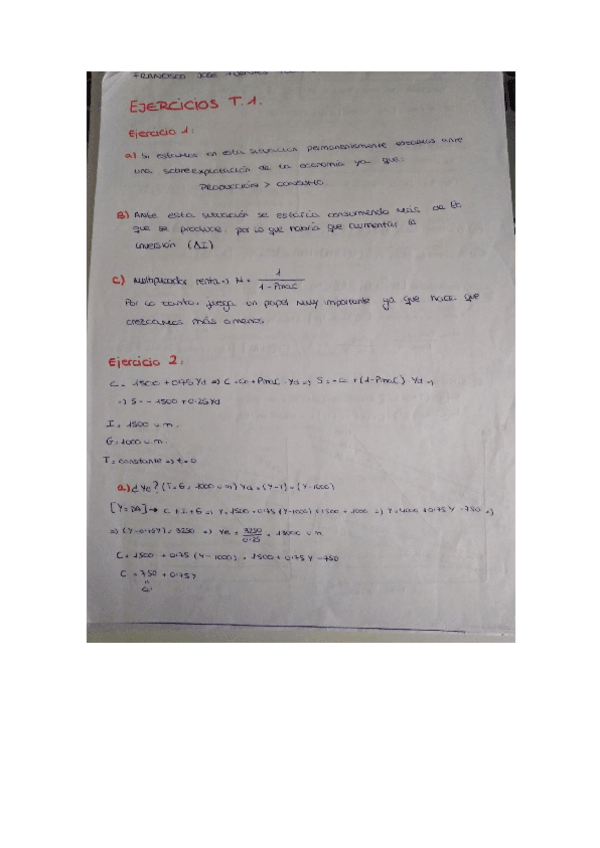 FRANCISCO JOSE
EJERCICIOS T.1.
Ejercicio 1:
a) Si estamos en esta situación permanentemente estamos ante
una sobreexplotación de la economía ya que:
PRODUCCIÓN > CONSUMO
B) Ante esta situación se estaría consumiendo más de lo
que se produce, por lo que habría que aumentar la
inversión (ΔI)
C) Multiplicador renta => N = 1 / 1 - PmaC
Por lo tanto, juega un papel muy importante ya que hace que
crezcamos más o menos.
Ejercicio 2:
C = 1500 + 0'75 Yd => C = Ca + PmaC · Yd => S = -Ca + (1-PmaC) Yd =>
=> S = - 1500 + 0'25 Yd
I = 1500 u.m.
G = 1000 u.m.
T = constante => t = 0
a) ¿Ye? (T = G = 1000 u.m) Yd = (Y-T) = (Y-1000)
[Y = DA] → C + I + G => Y = 1500 + 0'75 (Y-1000) + 1500 + 1000 => Y = 4000 + 0'75 Y - 750 =>
=> (Y-0'75Y) = 3250 => Ye = 3250 / 0'25 = 13000 u.m
C = 1500 + 0'75 (Y - 1000) = 1500 + 0'75 Y - 750
C = 750 + 0'75Y